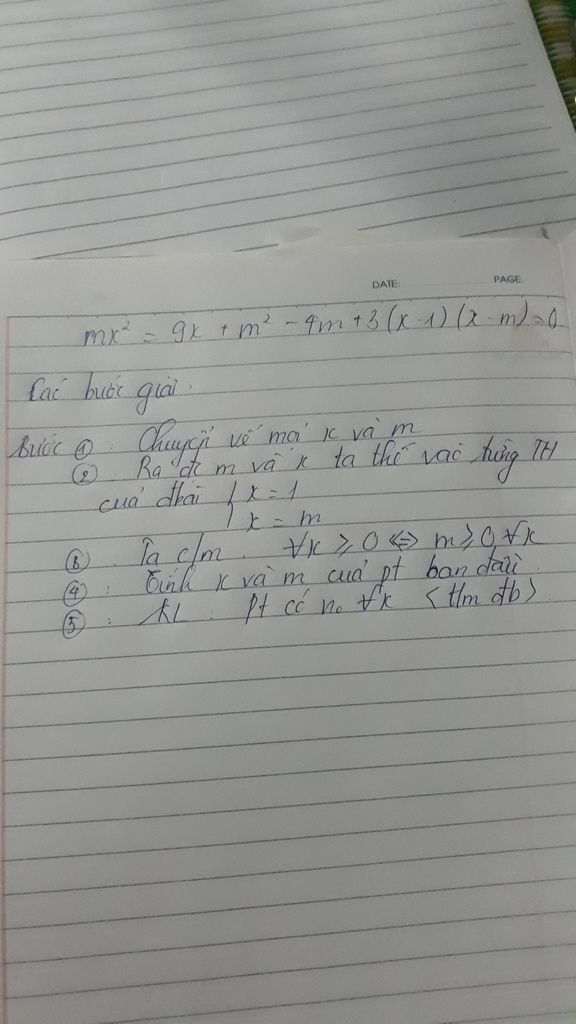 DATE: PAGE
mx² = 9x + m² - 4m + 3 (x-1) (x-m) = 0
Các bước giải.
Bước ①: Chuyển vế mà x và m
②: Ra đc m và x ta thế vào từng TH
của đkài { x = 1
x = m
③: Ta c/m: ∀x ⩾ 0 ⇔ m ⩾ 0 ∀x
④: Tính x và m của pt ban đầu
⑤: KL: Pt có no ∀x < tlm đb >